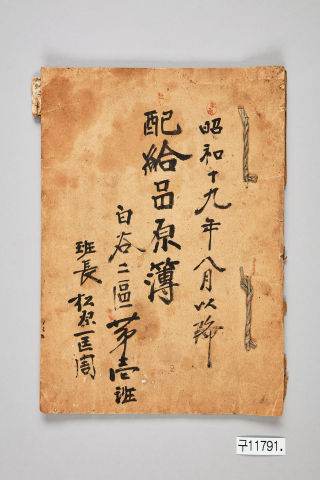 昭和十九年八月以降
配給品原簿
白谷二區第壱班
班長 松原一匡
구11791.